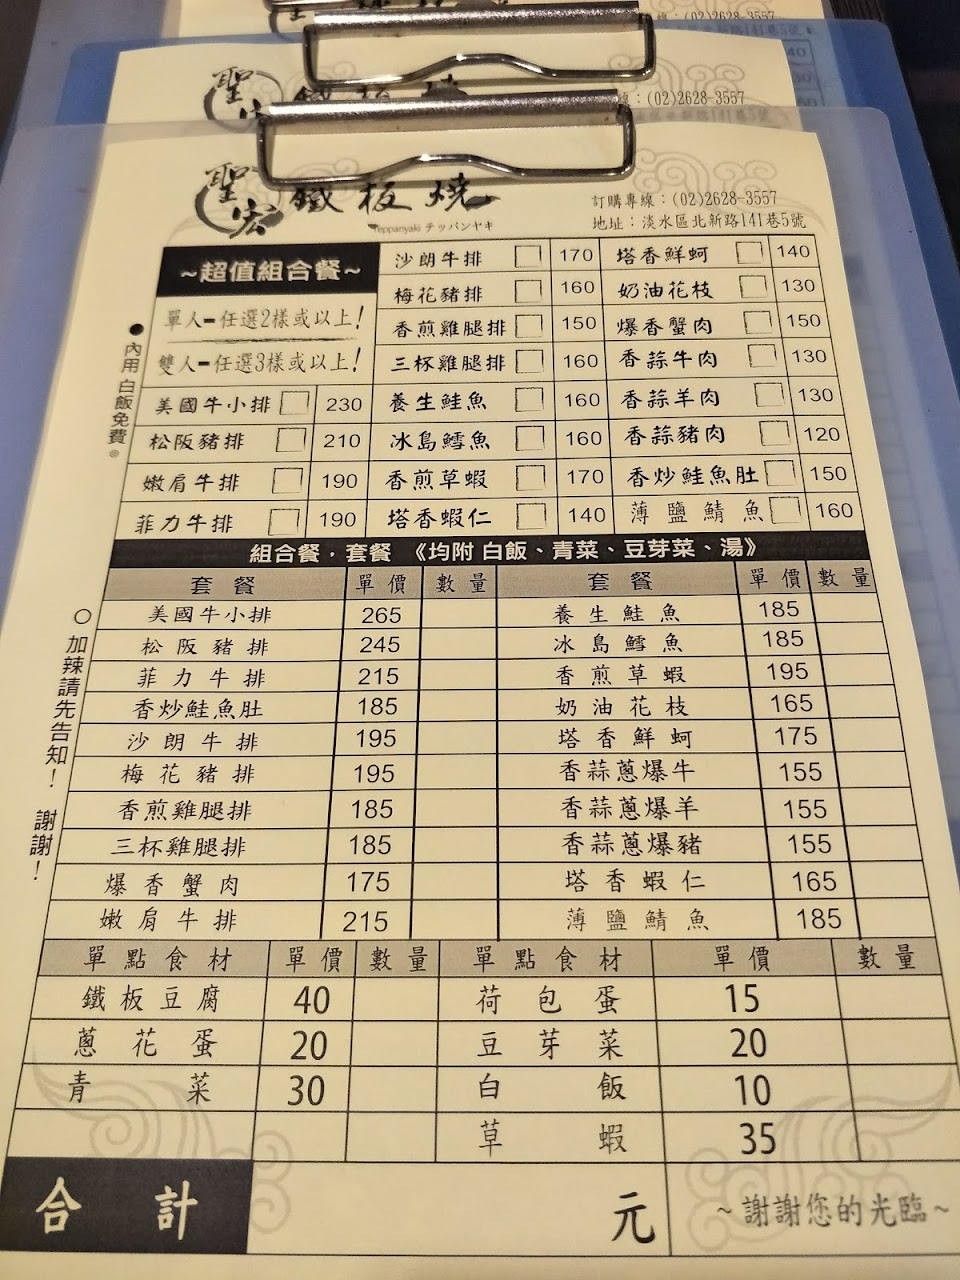 (02)2628-3557
聖
(02)2628-3557
聖宏鐵板燒
Teppanyaki テッパンヤキ
訂購專線：(02)2628-3557
地址：淡水區北新路141巷5號
~超值組合餐~
單人=任選2樣或以上!
雙人=任選3樣或以上!
●內用 白飯免費。
沙朗牛排 170 塔香鮮蚵 140
梅花豬排 160 奶油花枝 130
香煎雞腿排 150 爆香蟹肉 150
三杯雞腿排 160 香蒜牛肉 130
美國牛小排 230 養生鮭魚 160 香蒜羊肉 130
松阪豬排 210 冰島鱈魚 160 香蒜豬肉 120
嫩肩牛排 190 香煎草蝦 170 香炒鮭魚肚 150
菲力牛排 190 塔香蝦仁 140 薄鹽鯖魚 160
組合餐．套餐 《均附 白飯、青菜、豆芽菜、湯》
○加辣請先告知！ 謝謝！
套餐 單價 數量 套餐 單價 數量
美國牛小排 265 養生鮭魚 185
松阪豬排 245 冰島鱈魚 185
菲力牛排 215 香煎草蝦 195
香炒鮭魚肚 185 奶油花枝 165
沙朗牛排 195 塔香鮮蚵 175
梅花豬排 195 香蒜蔥爆牛 155
香煎雞腿排 185 香蒜蔥爆羊 155
三杯雞腿排 185 香蒜蔥爆豬 155
爆香蟹肉 175 塔香蝦仁 165
嫩肩牛排 215 薄鹽鯖魚 185
單點食材 單價 數量 單點食材 單價 數量
鐵板豆腐 40 荷包蛋 15
蔥花蛋 20 豆芽菜 20
青菜 30 白飯 10
草蝦 35
合計 元 ~謝謝您的光臨~